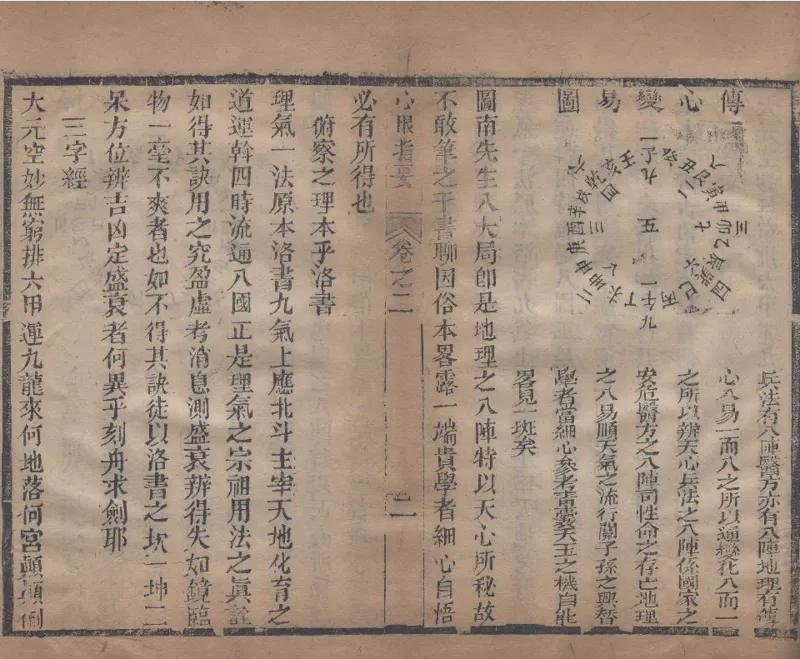 傳心變易圖
一 八 三 四 九 二 六
壬子癸
丑艮寅
甲卯乙
辰巽巳
丙午丁
未坤申
庚酉辛
戌乾亥
九 二 七 六 一 八 三 四
五
兵法有八陣醫方亦有八陣地理有傳
心八易一而八之所以通變化八而一
之所以辨天心兵法之八陣係國家之
安危醫方之八陣司性命之存亡地理
之八易順天氣之流行關子孫之興替
學者當細心參考青囊天玉之機自能
畧見一斑矣
圖南先生八大局卽是地理之八陣特以天心所秘故
不敢筆之于書聊因俗本畧露一端貴學者細心自悟
心眼指要 卷之二 二
必有所得也
俯察之理本乎洛書
理氣一法原本洛書九氣上應北斗主宰天地化育之
道運斡四時流通八國正是理氣之宗祖用法之眞詮
如得其訣用之究盈虛考消息測盛衰辨得失如鏡臨
物一毫不爽者也如不得其訣徒以洛書之坎一坤二
呆方位辨吉凶定盛衰者何異乎刻舟求劍耶
三字經
大元空妙無窮排六甲運九龍來何地落何宮顚顚倒